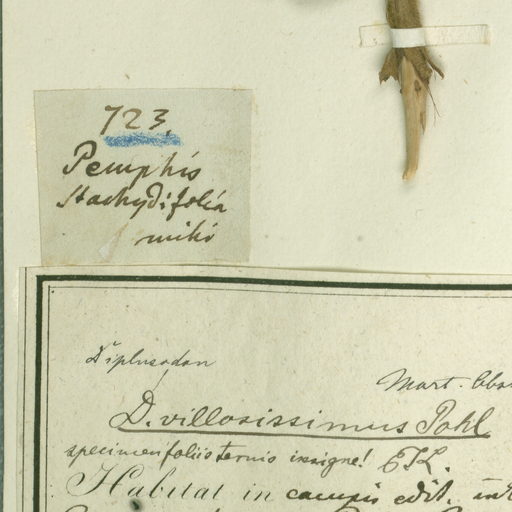 723.
Pemphis
stachydifolia
mihi
Diplusodon
Mart. Obs
D. villosissimus Pohl
specimen foliis ternis insigne! EK.
Habitat in campis edit.